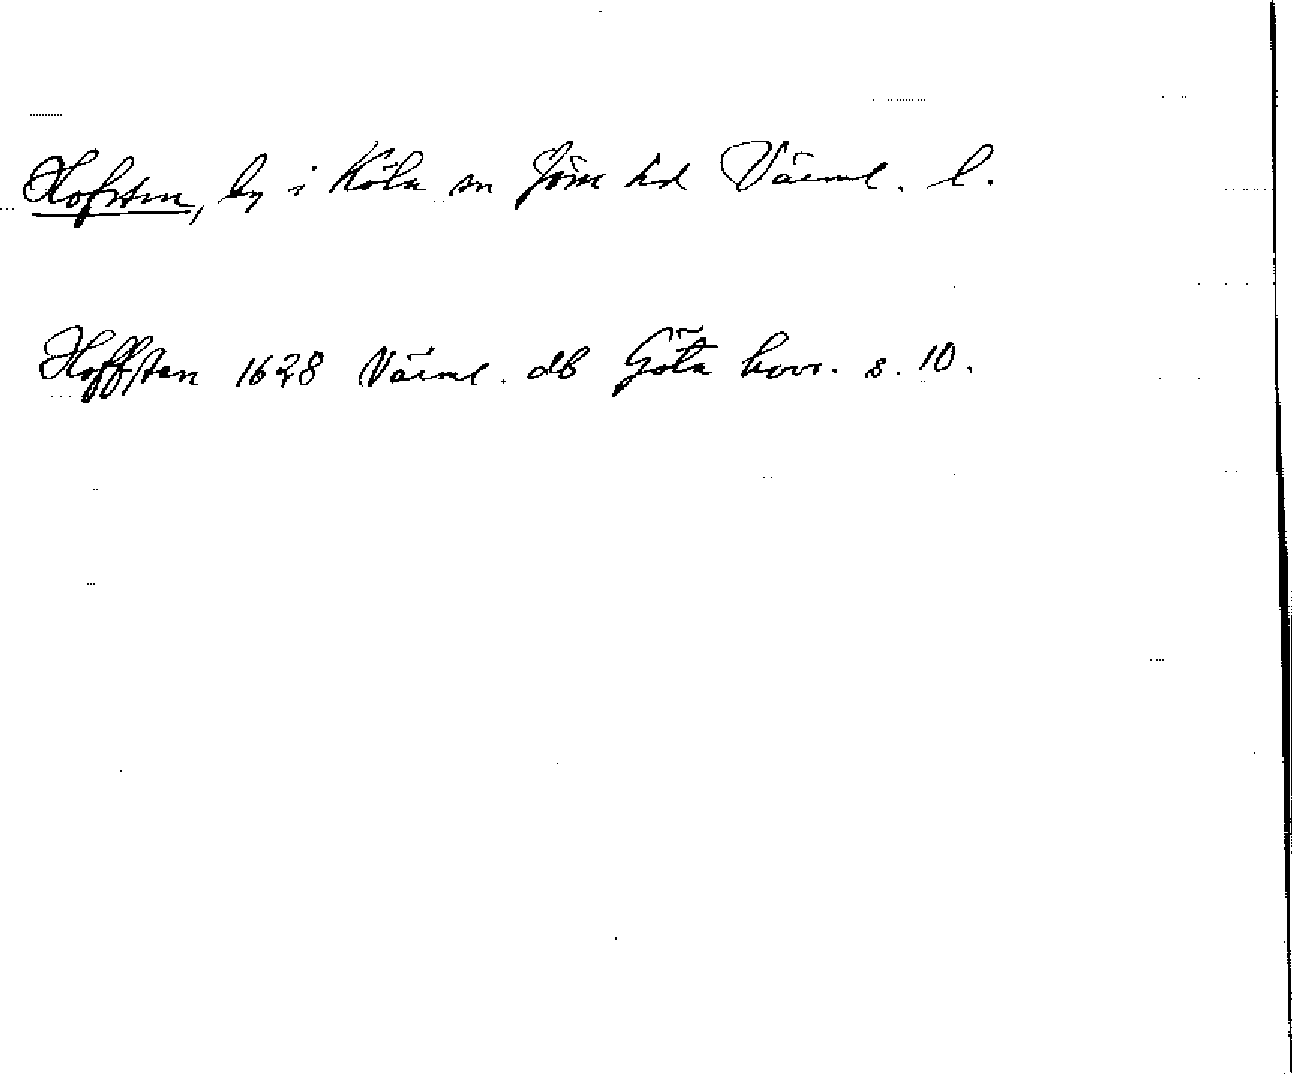 Hofsten, by i Köla sn Jösse hd Värml. l.
Hoffsten 1628 Värml. db Göta hovr. s. 10.